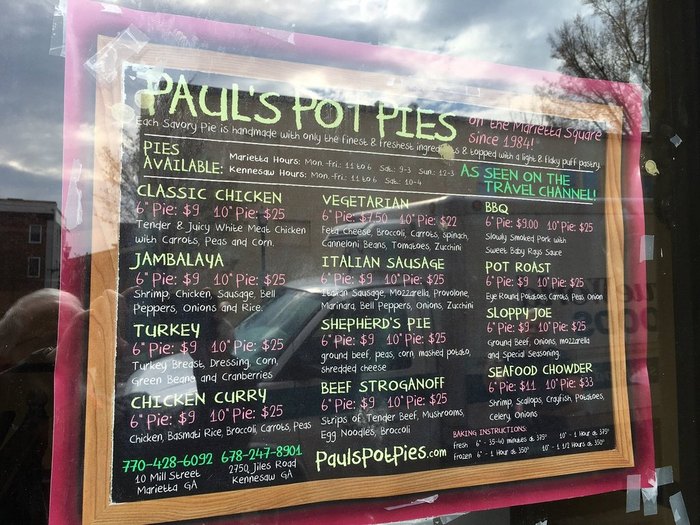 PAUL'S POT PIES
on the Marietta Square
since 1984!
Each Savory Pie is handmade with only the finest & freshest ingredients & topped with a light & flaky puff pastry
PIES
AVAILABLE:
Marietta Hours: Mon.-Fri.: 11 to 6 Sat.: 9-3 Sun.: 12-3
Kennesaw Hours: Mon.-Fri.: 11 to 6 Sat.: 10-4
AS SEEN ON THE
TRAVEL CHANNEL!
CLASSIC CHICKEN
6" Pie: $9 10" Pie: $25
Tender & Juicy White Meat Chicken
with Carrots, Peas and Corn.
JAMBALAYA
6" Pie: $9 10" Pie: $25
Shrimp, Chicken, Sausage, Bell
Peppers, Onions and Rice.
TURKEY
6" Pie: $9 10" Pie: $25
Turkey Breast, Dressing, Corn,
Green Beans and Cranberries.
CHICKEN CURRY
6" Pie: $9 10" Pie: $25
Chicken, Basmati Rice, Broccoli, Carrots, Peas
VEGETARIAN
6" Pie: $7.50 10" Pie: $22
Feta Cheese, Broccoli, Carrots, Spinach,
Canneloni Beans, Tomatoes, Zucchini
ITALIAN SAUSAGE
6" Pie: $9 10" Pie: $25
Italian Sausage, Mozzarella, Provolone,
Marinara, Bell Peppers, Onions, Zucchini
SHEPHERD'S PIE
6" Pie: $9 10" Pie: $25
ground beef, peas, corn, mashed potato,
shredded cheese
BEEF STROGANOFF
6" Pie: $9 10" Pie: $25
Strips of Tender Beef, Mushrooms,
Egg Noodles, Broccoli
BBQ
6" Pie: $9.00 10" Pie: $25
Slowly Smoked Pork with
Sweet Baby Rays Sauce
POT ROAST
6" Pie: $9 10" Pie: $25
Eye Round, Potatoes, Carrots, Peas, Onion
SLOPPY JOE
6" Pie: $9 10" Pie: $25
Ground Beef, Onions, mozzarella
and Special Seasoning
SEAFOOD CHOWDER
6" Pie: $11 10" Pie: $33
Shrimp, Scallops, Crayfish, Potatoes,
Celery, Onions
BAKING INSTRUCTIONS:
Fresh 6" - 35-40 minutes at 375° 10" - 1 Hour at 375°
Frozen 6" - 1 Hour at 350° 10" - 1 1/2 Hours at 350°
770-428-6092 678-247-8901
10 Mill Street
Marietta GA
2750 Jiles Road
Kennesaw GA
PaulsPotPies.com